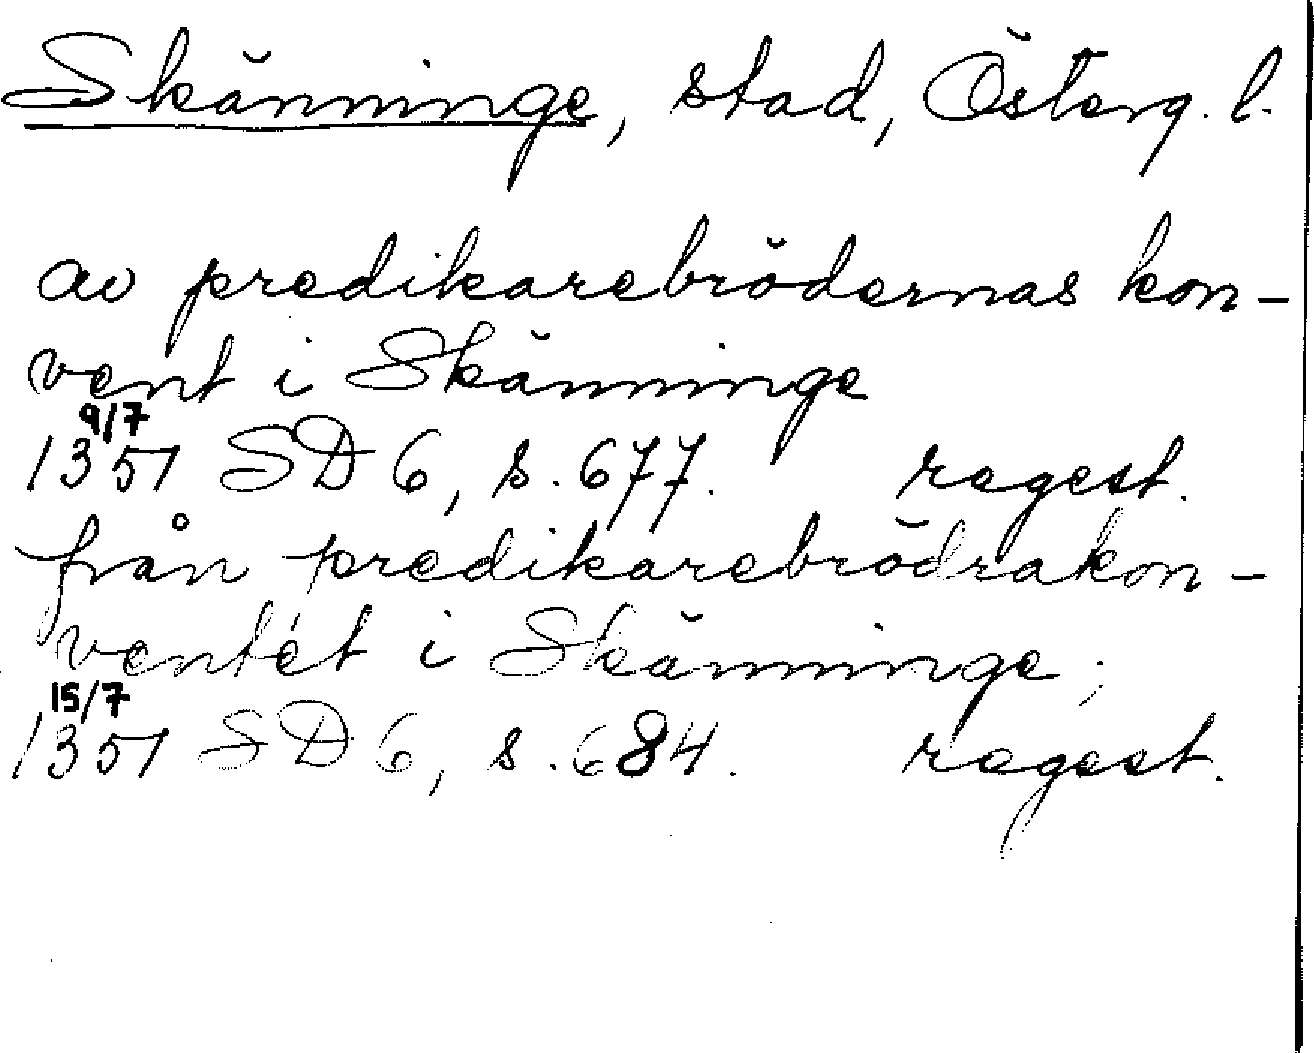 Skänninge, stad, Österg. l.
av predikarebrödernas kon-
vent i Skänninge
9/7
1351 SD 6, s. 677. regest.
från predikarebrödrakon-
ventet i Skänninge,
15/7
1351 SD 6, s. 684. regest.